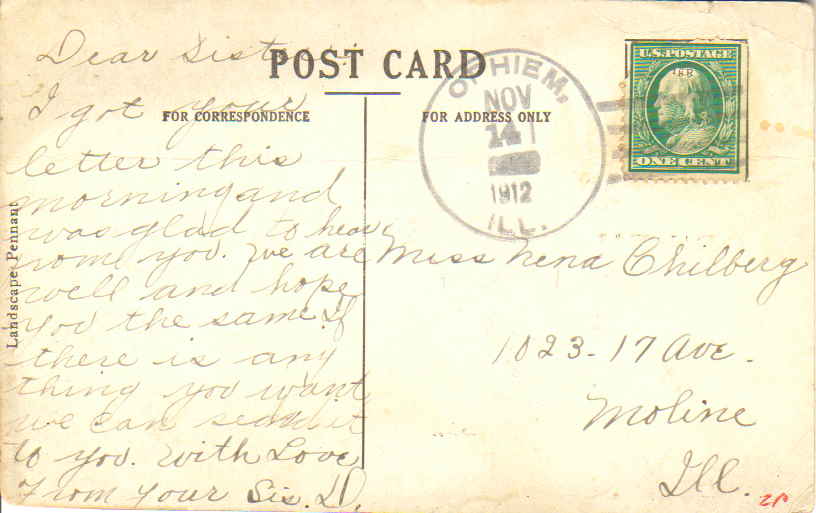 POST CARD
FOR CORRESPONDENCE
FOR ADDRESS ONLY
Landscape Pennant
Dear Sister
I got your
letter this
morning and
was glad to hear
from you. We are
well and hope
you the same If
there is any
thing you want
we can send it
to you. With Love
From your Sis. D.
OPHIEM,
NOV
14
1912
ILL.
U.S. POSTAGE
ONE CENT
Miss Nena Chilberg
1023-17 Ave.
Moline
Ill.